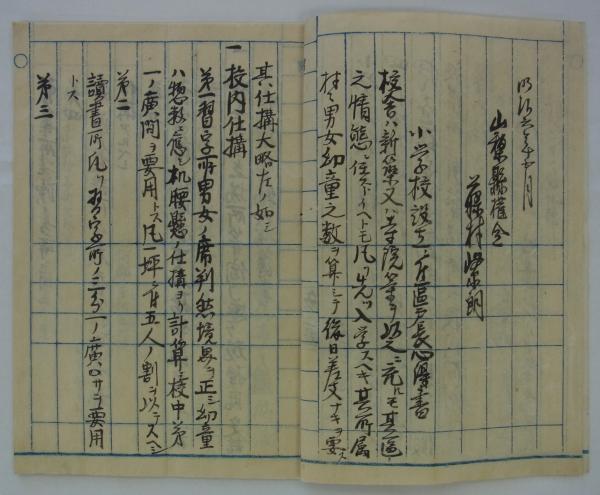 明治六年十月
山梨縣権令
藤村紫朗
小学校設立ニ付區戸長心得書
校舎ハ新築又ハ寺院等ヲ以之ニ充ルモ其區
之情態ニ任スト イヘトモ凡ソ先ツ入学スヘキ其所属
村々男女幼童之数ヲ算シテ後日差支ナキヲ要ス
其仕構大略左ノ如シ
一 校内仕構
第一習字所男女ノ席判然境界ヲ正シ幼童
ハ惣形ニ應シ机腰懸ノ仕構ヨリ計算シ校中第
一ノ廣間ヲ要用トス凡一坪ニ付五人ノ割ヲ以テスヘシ
第二
讀書所凡ソ習字所ノ三分一ノ廣サヲ要用
トス
第三